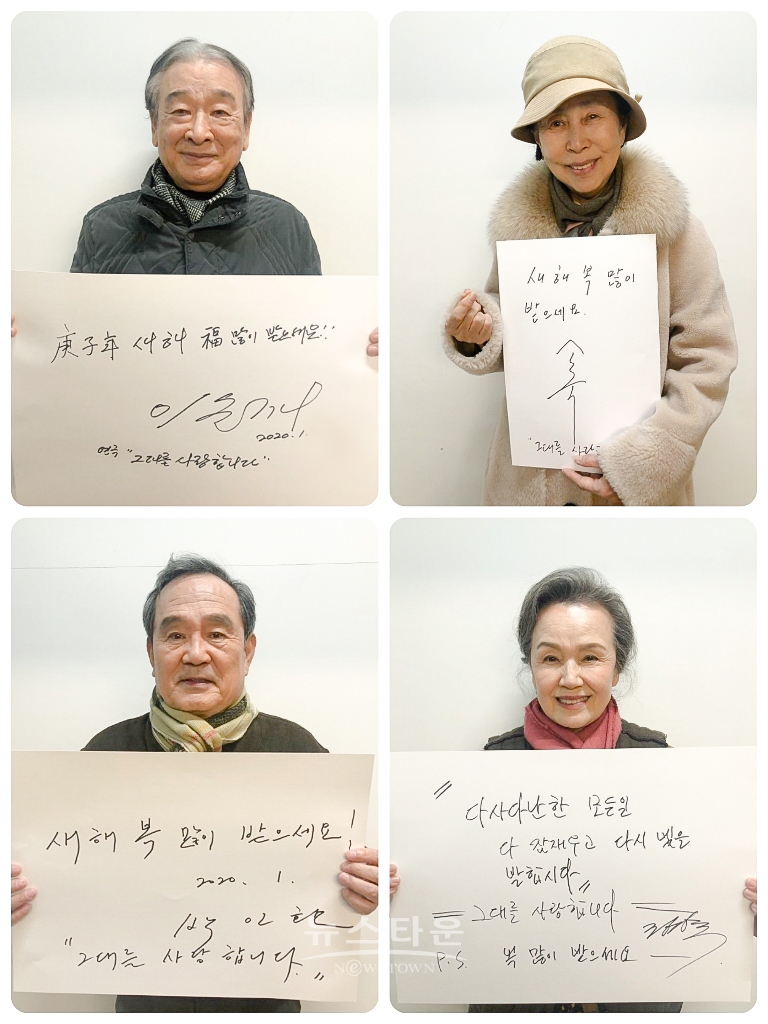 庚子年 새해 福 많이 받으세요!!
이순재
2020.1.
연극 "그대를 사랑합니다"
새해 복 많이
받으세요.
숙
"그대를 사랑
새해 복 많이 받으세요!
2020. 1.
"그대를 사랑합니다."
"다사다난한 모든일
다 잠재우고 다시 빛을
발합시다"
그대를 사랑합니다
P.S. 복 많이 받으세요
뉴스타운
NEWSTOWN